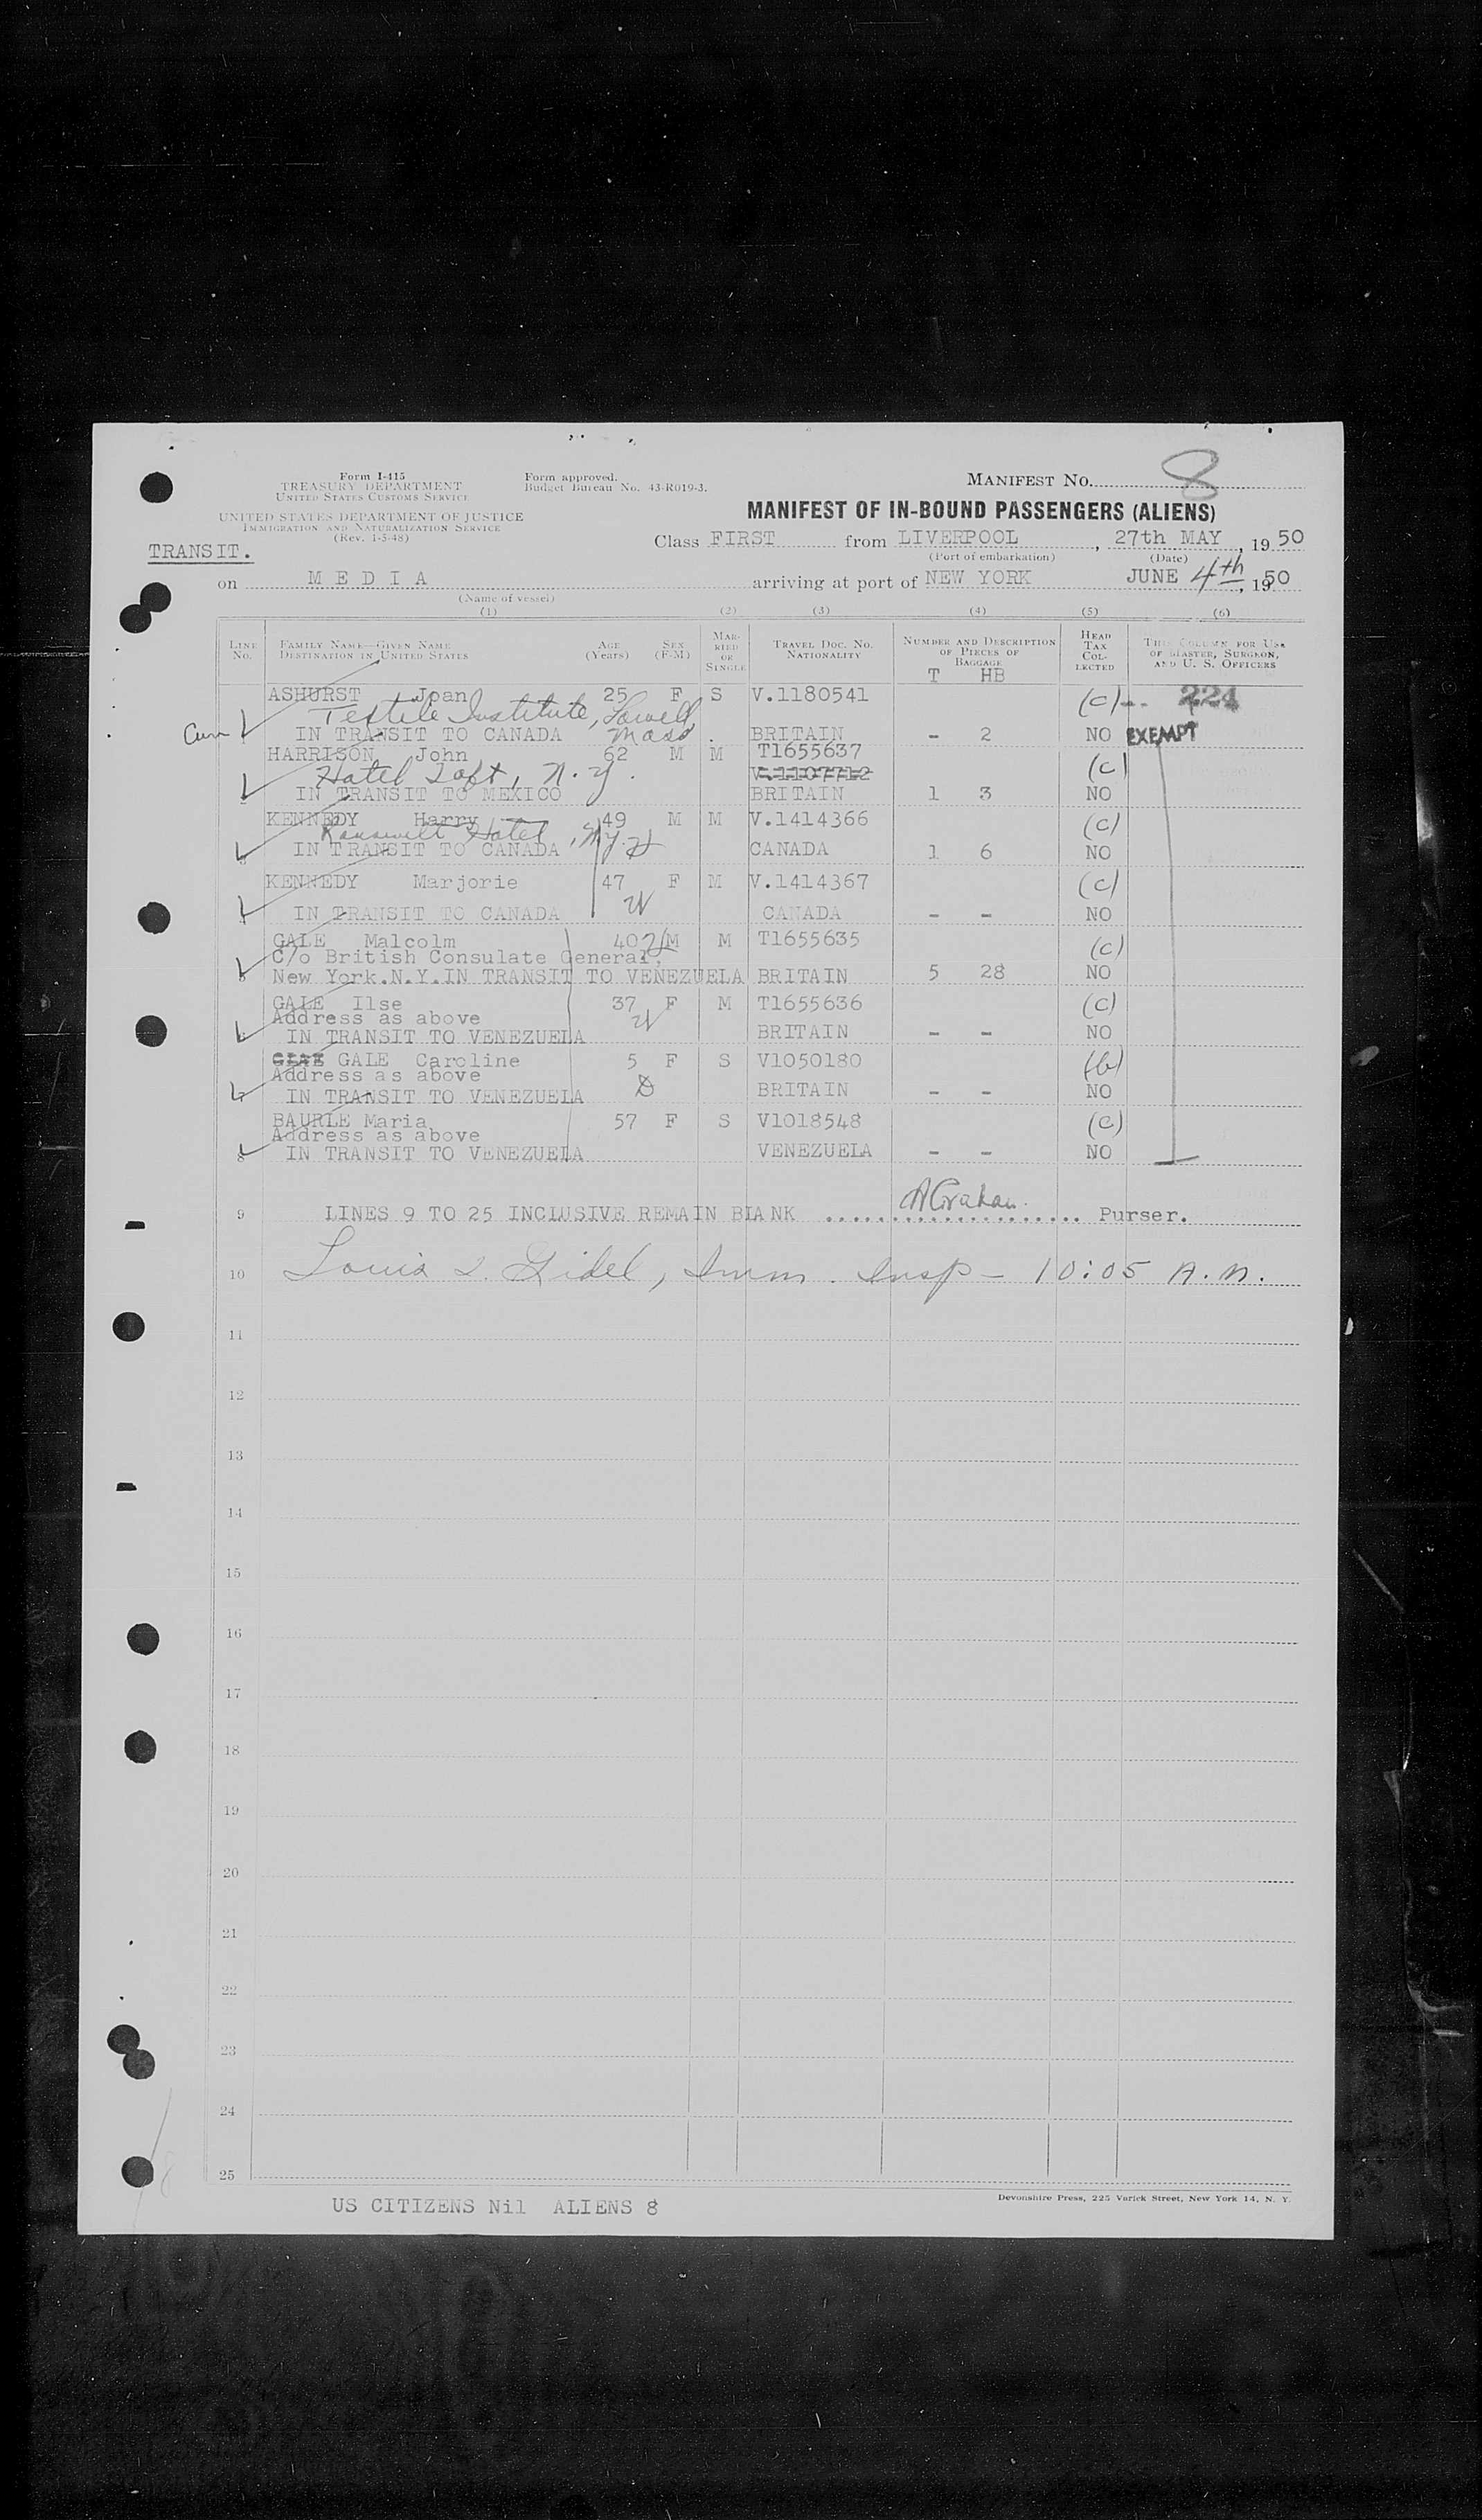 Form I-415
TREASURY DEPARTMENT
UNITED STATES CUSTOMS SERVICE
Form approved.
Budget Bureau No. 43-R019-3.
MANIFEST No. 8
UNITED STATES DEPARTMENT OF JUSTICE
IMMIGRATION AND NATURALIZATION SERVICE
(Rev. 1-5-48)
MANIFEST OF IN-BOUND PASSENGERS (ALIENS)
TRANSIT.
Class FIRST from LIVERPOOL, 27th MAY, 1950
(Port of embarkation) (Date)
on MEDIA arriving at port of NEW YORK JUNE 4th, 1950
(Name of vessel)
(1) (2) (3) (4) (5) (6)
LINE No. FAMILY NAME—GIVEN NAME DESTINATION IN UNITED STATES AGE (Years) SEX (F-M) MARRIED OR SINGLE TRAVEL DOC. No. NATIONALITY NUMBER AND DESCRIPTION OF PIECES OF BAGGAGE HEAD TAX COLLECTED THIS COLUMN FOR USE OF MASTER, SURGEON, AND U. S. OFFICERS
T HB
ASHURST Joan 25 F S V.1180541 (c) 224
Textile Institute, Lowell, Mass.
IN TRANSIT TO CANADA BRITAIN - 2 NO EXEMPT
HARRISON John 62 M M T1655637
V.1107712 (c)
Hotel Taft, N.Y.
IN TRANSIT TO MEXICO BRITAIN 1 3 NO
KENNEDY Harry 49 M M V.1414366 (c)
Roosevelt Hotel, N.Y.
IN TRANSIT TO CANADA CANADA 1 6 NO
KENNEDY Marjorie 47 F M V.1414367 (c)
IN TRANSIT TO CANADA CANADA - - NO
GALE Malcolm 40 M M T1655635 (c)
C/o British Consulate General,
New York.N.Y. IN TRANSIT TO VENEZUELA BRITAIN 5 28 NO
GALE Ilse 37 F M T1655636 (c)
Address as above
IN TRANSIT TO VENEZUELA BRITAIN - - NO
GALE Caroline 5 F S V1050180 (b)
Address as above
IN TRANSIT TO VENEZUELA BRITAIN - - NO
BAURLE Maria 57 F S V1018548 (c)
Address as above
8 IN TRANSIT TO VENEZUELA VENEZUELA - - NO
9 LINES 9 TO 25 INCLUSIVE REMAIN BLANK AGraham. Purser.
10 Louis I. Gidel, Imm. Insp - 10:05 A.M.
11
12
13
14
15
16
17
18
19
20
21
22
23
24
25
US CITIZENS Nil ALIENS 8
Devonshire Press, 225 Varick Street, New York 14, N. Y.